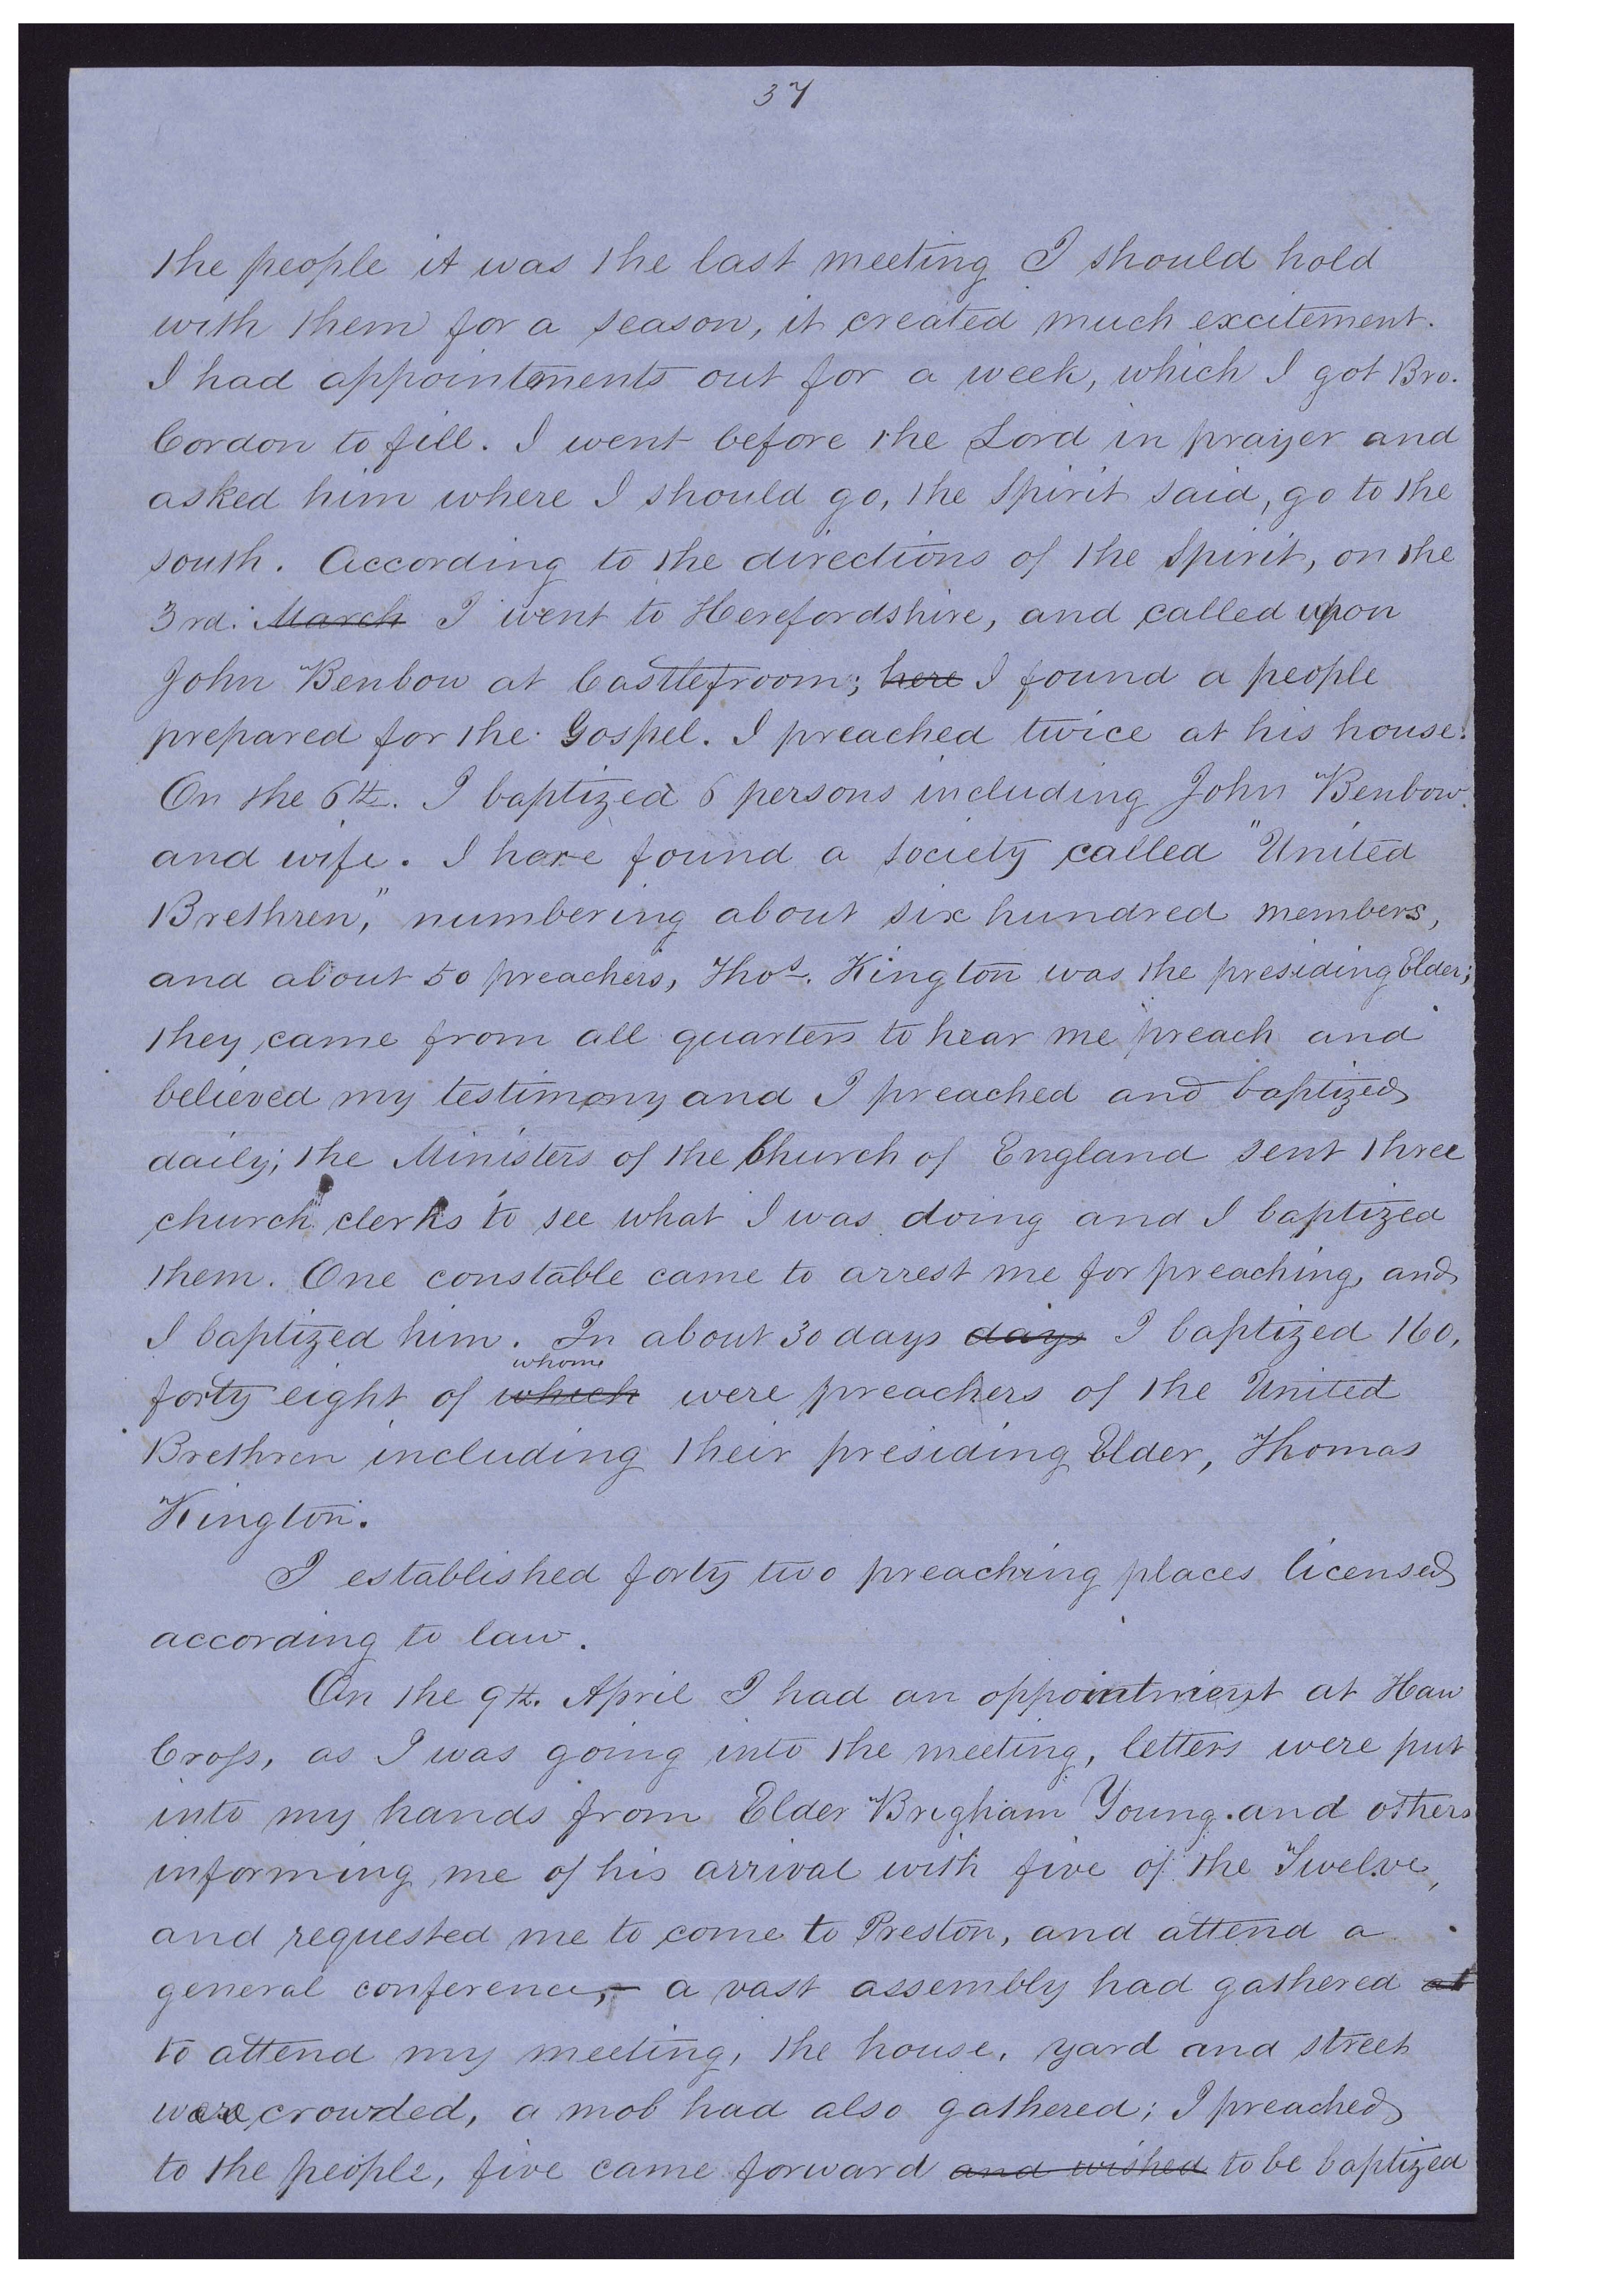 37
the people it was the last meeting I should hold
with them for a season, it created much excitement.
I had appointments out for a week, which I got Bro.
Cordon to fill. I went before the Lord in prayer and
asked him where I should go, the Spirit said, go to the
south. According to the directions of the Spirit, on the
3rd. March I went to Herefordshire, and called upon
John Benbow at Castlefroom; here I found a people
prepared for the Gospel. I preached twice at his house.
On the 6th. I baptized 6 persons including John Benbow
and wife. I here found a society called "United
Brethren," numbering about six hundred members,
and about 50 preachers, Thos. Kington was the presiding Elder;
they came from all quarters to hear me preach and
believed my testimony and I preached and baptized
daily; the Ministers of the Church of England sent three
church clerks to see what I was doing and I baptized
them. One constable came to arrest me for preaching, and
I baptized him. In about 30 days days I baptized 160,
whome
forty eight of which were preachers of the United
Brethren including their presiding Elder, Thomas
Kington.
I established forty two preaching places licensed
according to law.
On the 9th. April I had an appointment at Haw
Cross, as I was going into the meeting, letters were put
into my hands from Elder Brigham Young. and others
informing me of his arrival with five of the Twelve,
and requested me to come to Preston, and attend a
general conference,- a vast assembly had gathered at
to attend my meeting, the house, yard and street
were crowded, a mob had also gathered; I preached
to the people, five came forward and wished to be baptized